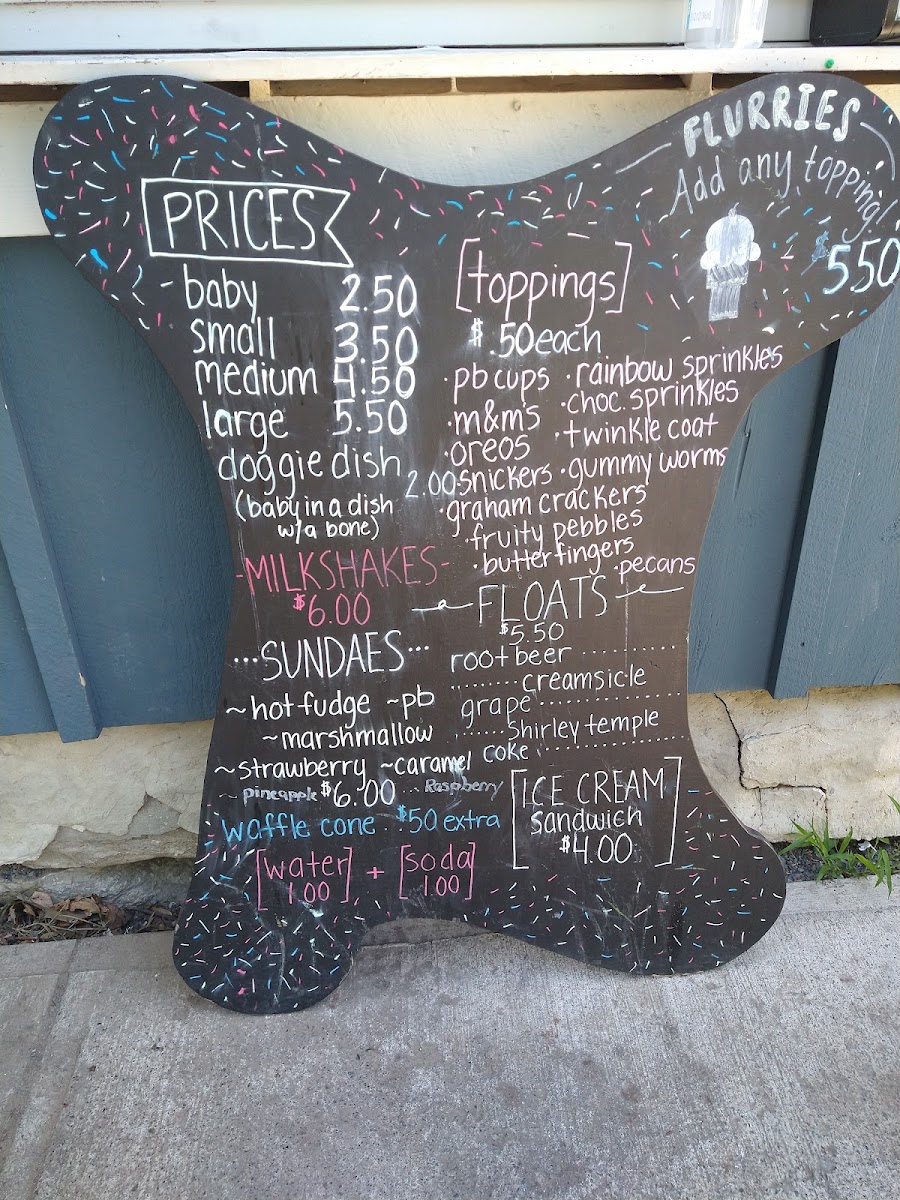 FLURRIES
Add any topping!
$ 5.50
PRICES
baby 2.50
small 3.50
medium 4.50
large 5.50
doggie dish 2.00
(baby in a dish
w/a bone)
-MILKSHAKES-
$6.00
...SUNDAES...
~hot fudge ~pb
~marshmallow
~strawberry ~caramel
~pineapple $6.00 Raspberry
waffle cone $.50 extra
[water] + [soda]
1.00 1.00
[toppings]
$.50 each
·pb cups ·rainbow sprinkles
·m&m's ·choc. sprinkles
·oreos ·twinkle coat
·snickers ·gummy worms
·graham crackers
·fruity pebbles
·butterfingers
·pecans
FLOATS
$5.50
root beer ..........
........creamsicle
grape ..............
......Shirley temple
coke ..............
[ICE CREAM
sandwich
$4.00]